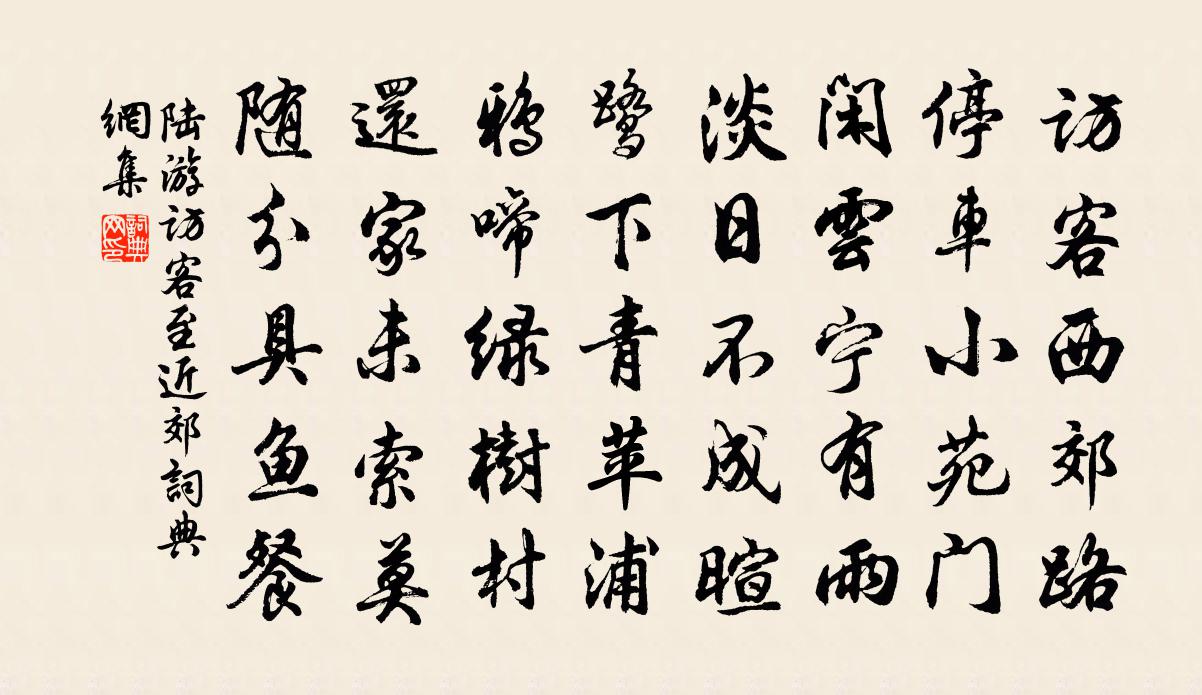 访客西郊路
停車小苑门
闲雲宁有雨
淡日不成暄
鹭下青苹浦
鴉啼绿樹村
還家未索莫
随分具鱼餐
陆游访客至近郊詞典
網集
詞典
网印